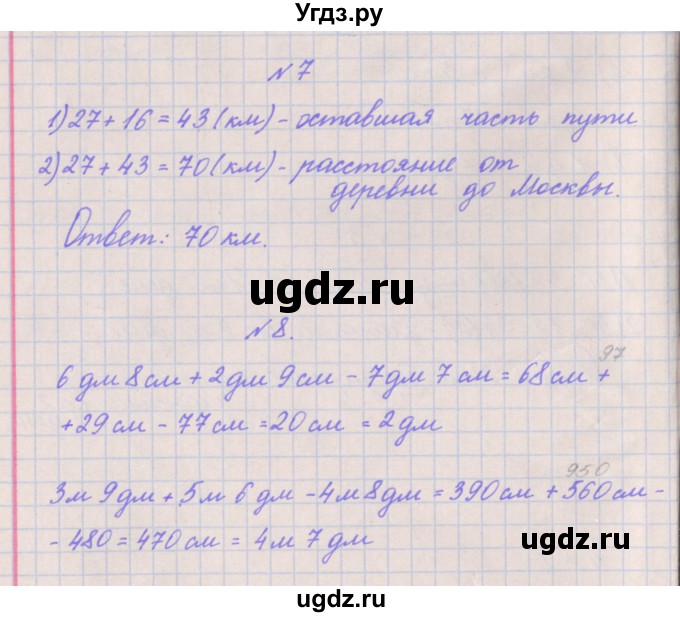 Угдз.ру
№7
1) 27 + 16 = 43 (км) - оставшая часть пути
2) 27 + 43 = 70 (км) - расстояние от
деревни до Москвы.
Ответ: 70 км.
ugdz.ru
№8.
97
6 дм 8 см + 2 дм 9 см - 7 дм 7 см = 68 см +
+ 29 см - 77 см = 20 см = 2 дм
950
3 м 9 дм + 5 м 6 дм - 4 м 8 дм = 390 см + 560 см -
- 480 = 470 см = 4 м 7 дм
ugdz.ru
ugdz.ru